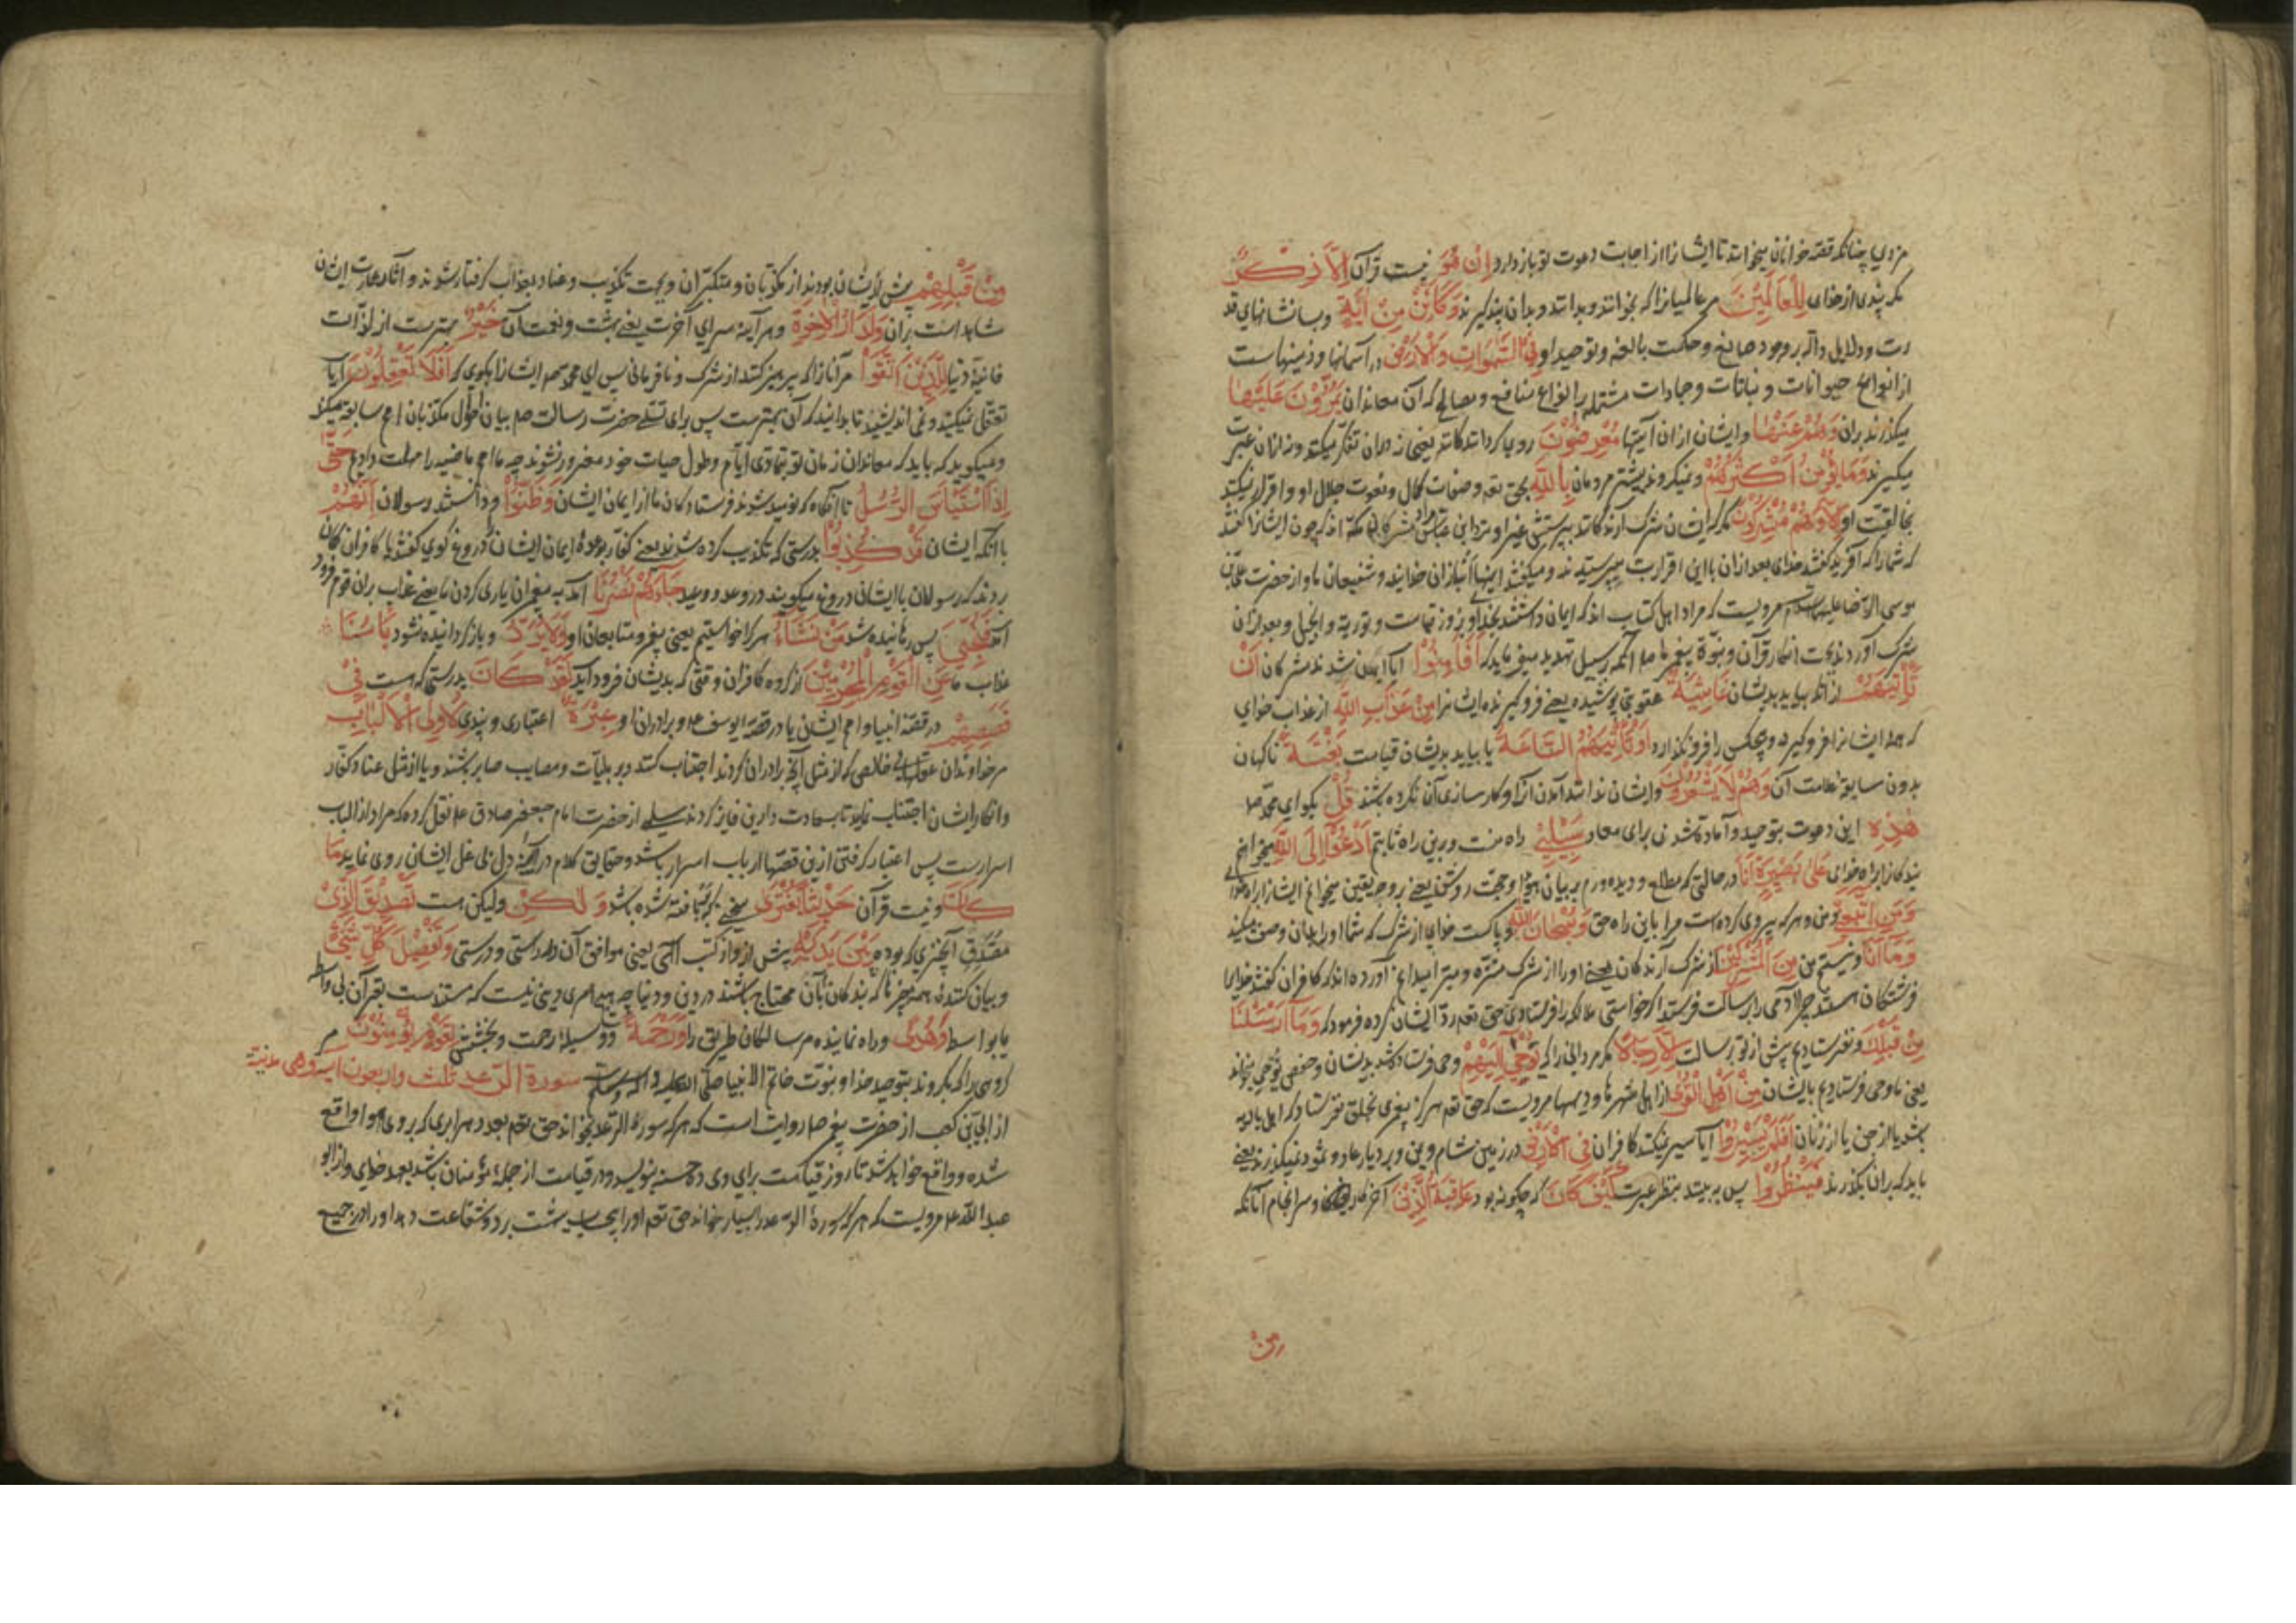 مزدی چنانکه قصه خوانان میخواهند تا ایشانرا از اجابت دعوت تو باز دارد اِنْ هُوَ نیست قرآن اِلاَّ ذِكْرٌ
مگر پندی از خدای لِلْعَالَمِيْنَ مر عالمیانرا که بخوانند و بدانند و بدان پند گیرند وَكَاَيِّنْ مِنْ اٰيَةٍ و بسا نشانهای قد
رت و دلایل داله بر وجود صانع و حکمت بالغه و توحید او فِي السَّمٰوَاتِ وَالْاَرْضِ در آسمانها و زمینهاست
از انواع حیوانات و نباتات و جمادات مشتمله بر انواع منافع و مصالح که آن معاندان يَمُرُّوْنَ عَلَيْهَا
میگذرند بران وَهُمْ عَنْهَا و ایشان ازان آیتها مُعْرِضُوْنَ روی گردانندگانند یعنی دران تفکر نمیکنند و ازان عبرت
نمیگیرند وَمَا يُؤْمِنُ اَكْثَرُهُمْ و نمیگروند بیشتر مردمان بِاللّٰهِ بحق تعه و صفات کمال و نعوت جلال او و اقرار نمیکنند
بخالقیت او اِلاَّ وَهُمْ مُشْرِكُوْنَ مگر که ایشان شرک آرندگانند بپرستش غیر او نزد ابن عباس مراد مشرکان مکه اند که چون ایشانرا گفتند
که شما را که آفرید گفتند خدای بعد ازان با این اقرار بت میپرستیدند و میگفتند اینها انبازان خدایند و شفیعان ما و از حضرت علی بن
موسی الرضا علیهما السلام مرویست که مراد اهل کتاب اند که ایمان داشتند بخدا و بروز قیامت و توریة و انجیل و بعد ازان
شرک آوردند بجهت انکار قرآن و نبوة پیغمبر ما صلا آنکه بر سبیل تهدید میفرماید که اَفَاَمِنُوْا آیا ایمن شدند مشرکان اَنْ
تَاْتِيَهُمْ ازانکه بیاید بدیشان غَاشِيَةٌ عقوبتی پوشیده یعنی فرو گیرنده ایشانرا مِنْ عَذَابِ اللّٰهِ از عذاب خدای
که همه ایشانرا فرو گیرد و هیچکس را فرو نگذارد اَوْ تَاْتِيَهُمُ السَّاعَةُ یا بیاید بدیشان قیامت بَغْتَةً ناگهان
بدون سابقه علامت آن وَهُمْ لَا يَشْعُرُوْنَ و ایشان ندانند آمدن آنرا و کارسازی آن نکرده باشند قُلْ بگو ای محمد صلا
هٰذِهٖ این دعوت بتوحید و آماده شدن برای معاد سَبِيْلِيْ راه منست و برین راه ثابتم اَدْعُوْا اِلَى اللّٰهِ میخوانم
بندگانرا براه خدای عَلٰى بَصِيْرَةٍ اَنَا در حالتی که مطلع و دیده ورم بر بیان و حجت روشن یعنی بر وجه یقین میخوانم ایشانرا براه خدای
وَمَنِ اتَّبَعَنِيْ من و هر که پیروی کرده است مرا باین راه حق وَسُبْحَانَ اللّٰهِ و پاکست خدای از شرک که شما او را بدان وصف میکنید
وَمَا اَنَا و نیستم من مِنَ الْمُشْرِكِيْنَ از شرک آرندگان یعنی او را از شرک منزه و مبرا میدانم آورده اند که کافران گفتند خدایرا
فرشتگان هستند چرا آدمی را برسالت فرستد اگر خواستی ملائکه را فرستادی حق تعه رد ایشان کرده فرمود که وَمَا اَرْسَلْنَا
مِنْ قَبْلِكَ و نفرستادیم پیش از تو برسالت اِلاَّ رِجَالًا مگر مردانی را که نُوْحِيْ اِلَيْهِمْ وحی فرستاده شد بدیشان و حفص نوحی بخواند
یعنی ما وحی فرستادیم بایشان مِنْ اَهْلِ الْقُرٰى از اهل شهرها و دیهها مرویست که حق تعه هرگز پیغمبری بخلق نفرستاد که اهل بادیه
باشد یا از جن یا از زنان اَفَلَمْ يَسِيْرُوْا آیا سیر نمیکنند کافران فِي الْاَرْضِ در زمین شام و یمن و بر دیار عاد و ثمود نمیگذرند یعنی
باید که بران بگذرند فَيَنْظُرُوْا پس به بینند بنظر عبرت كَيْفَ كَانَ که چگونه بود عَاقِبَةُ الَّذِيْنَ آخر کار و سرانجام آنانکه
مِنْ
مِنْ قَبْلِهِمْ پیش از ایشان بودند از مکذبان و متکبران و بجهت تکذیب و عناد بعذاب گرفتار شوند و آثار عمارت ایشان
شاهد است بران وَلَدَارُ الْاٰخِرَةِ و هر آینه سرای آخرت یعنی بهشت و نعمت آن خَيْرٌ بهترست از لذّات
فانیه دنیا لِلَّذِيْنَ اتَّقَوْا مر آنانرا که پرهیز کنند از شرک و نافرمانی پس ای محمد صلعم ایشانرا بگوی که اَفَلَا تَعْقِلُوْنَ آیا
تعقل نمیکنید و نمی اندیشید تا بدانید که آن بهترست پس برای تسلی حضرت رسالت صلعم بیان احوال مکذبان امم سابقه میکند
و میگوید که باید که معاندان زمان تو بتمادی ایام و طول حیات خود مغرور نشوند چه ما امم ماضیه را مهلت دادیم حَتّٰى
اِذَا اسْتَيْاَسَ الرُّسُلُ تا آنگاه که نومید شدند فرستادگان ما از ایمان ایشان وَظَنُّوْا و دانستند رسولان اَنَّهُمْ
با آنکه ایشان قَدْ كُذِبُوْا بدرستی که تکذیب کرده شدند یعنی کفار بوعدهٔ ایمان ایشان دروغ گوی گفتند یا کافران گمان
بردند که رسولان با ایشان دروغ میگویند در وعد و وعید جَآءَهُمْ نَصْرُنَا آمد به پیغمبران یاری کردن ما یعنی عذاب بران قوم فرود
آمد فَنُجِّيَ پس رهانیده شد مَنْ نَشَآءُ هر کرا خواستیم یعنی پیغمبر و متابعان او وَلَا يُرَدُّ و باز گردانیده نشود بَاْسُنَا
عذاب ما عَنِ الْقَوْمِ الْمُجْرِمِيْنَ از گروه کافران وقتی که بدیشان فرود آید لَقَدْ كَانَ بدرستی که هست فِيْ
قَصَصِهِمْ در قصهٔ انبیا و امم ایشان یا در قصهٔ یوسف علا و برادران او عِبْرَةٌ اعتباری و پندی لِاُولِي الْاَلْبَابِ
مر خداوندان عقلهای خالص که از مثل آنچه برادران کردند اجتناب کنند و بر بلیات و مصایب صابر باشند و یا از مثل عناد کفار
و انکار ایشان اجتناب نمایند تا بسعادت دارین فایز گردند سلمی از حضرت امام جعفر صادق علا نقل کرده که مراد از الباب
اسرارست پس اعتبار گرفتن ازین قصها ارباب اسرار باشد و حقایق کلام در آینهٔ دل بی غل ایشان روی نماید مَا
كَانَ و نیست قرآن حَدِيْثًا يُفْتَرٰى سخنی که بافته شده باشد وَلٰكِنْ ولیکن هست تَصْدِيْقَ الَّذِيْ
مصدق آنچیزی که بوده بَيْنَ يَدَيْهِ پیش ازو از کتب الهی یعنی موافق آن در راستی و درستی وَتَفْصِيْلَ كُلِّ شَيْءٍ
و بیان کنندهٔ همه چیزها که بندگان بآن محتاج باشند در دین و دنیا چه هیچ امری دینی نیست که مستند است بقرآن بی واسطه
یا بواسطه وَهُدًى و راه نماینده مر سالکان طریق را وَرَحْمَةً و وسیلهٔ رحمت و بخشش لِقَوْمٍ يُؤْمِنُوْنَ مر
گروهی را که بگروند بتوحید خدا و نبوت خاتم الانبیا صلی الله علیه و آله وسلم سورة الرعد ثلث واربعون آیة وهی مدنیة
از ابی بن کعب از حضرت پیغمبر صلا روایت است که هر که سورهٔ الرعد بخواند حق تعه بعدد هر ابری که بروی هوا واقع
شده و واقع خواهد شد تا روز قیامت برای وی ده حسنه بنویسد و در قیامت از جملهٔ مؤمنان باشد بعهد خدای و از ابو
عبد الله علا مرویست که هر که سورهٔ الرعد را بسیار خواند حق تعه او را بیحساب ببهشت برد و شفاعت دهد او را در جمیع